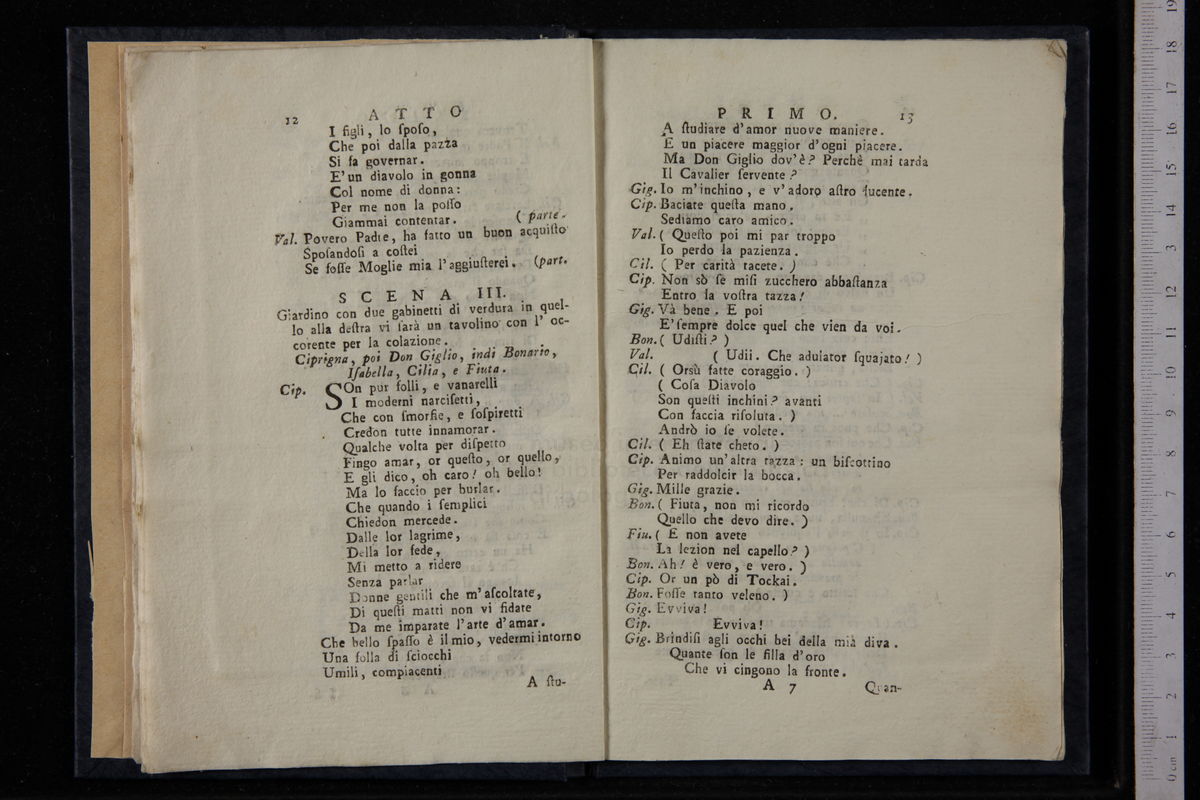 12 A T T O
I figli, lo ſpoſo,
Che poi dalla pazza
Si fa governar.
E'un diavolo in gonna
Col nome di donna:
Per me non la poſſo
Giammai contentar. ( parte.
Val. Povero Padre, ha fatto un buon acquiſto
Spoſandoſi a coſtei
Se foſſe Moglie mia l'aggiuſterei. (part.
S C E N A III.
Giardino con due gabinetti di verdura in quel-
lo alla deſtra vi ſarà un tavolino con l' oc-
corente per la colazione.
Ciprigna, poi Don Giglio, indi Bonario,
Iſabella, Cilia, e Fiuta.
Cip. SOn pur folli, e vanarelli
I moderni narciſetti,
Che con ſmorfie, e ſoſpiretti
Credon tutte innamorar.
Qualche volta per diſpetto
Fingo amar, or queſto, or quello,
E gli dico, oh caro! oh bello!
Ma lo faccio per burlar.
Che quando i ſemplici
Chiedon mercede.
Dalle lor lagrime,
Della lor fede,
Mi metto a ridere
Senza parlar
Donne gentili che m'aſcoltate,
Di queſti matti non vi fidate
Da me imparate l'arte d'amar.
Che bello ſpaſſo è il mio, vedermi intorno
Una folla di ſciocchi
Umili, compiacenti
A ſtu-
P R I M O. 13
A ſtudiare d'amor nuove maniere.
E un piacere maggior d'ogni piacere.
Ma Don Giglio dov'è? Perchè mai tarda
Il Cavalier ſervente?
Gig. Io m'inchino, e v'adoro aſtro lucente.
Cip. Baciate queſta mano.
Sediamo caro amico.
Val. ( Queſto poi mi par troppo
Io perdo la pazienza.
Cil. ( Per carità tacete. )
Cip. Non sò ſe miſi zucchero abbaſtanza
Entro la voſtra tazza!
Gig. Và bene. E poi
E'ſempre dolce quel che vien da voi.
Bon. ( Udiſti? )
Val. ( Udii. Che adulator ſquajato! )
Cil. ( Orsù fatte coraggio. )
( Coſa Diavolo
Son queſti inchini? avanti
Con faccia riſoluta. )
Andrò io ſe volete.
Cil. ( Eh ſtate cheto. )
Cip. Animo un'altra tazza: un biſcottino
Per raddolcir la bocca.
Gig. Mille grazie.
Bon. ( Fiuta, non mi ricordo
Quello che devo dire. )
Fiu. ( E non avete
La lezion nel capello? )
Bon. Ah! è vero, e vero. )
Cip. Or un pò di Tockai.
Bon. Foſſe tanto veleno. )
Gig. Evviva!
Cip. Evviva!
Gig. Brindiſi agli occhi bei della mià diva.
Quante ſon le filla d'oro
Che vi cingono la fronte.
A 7 Quan-